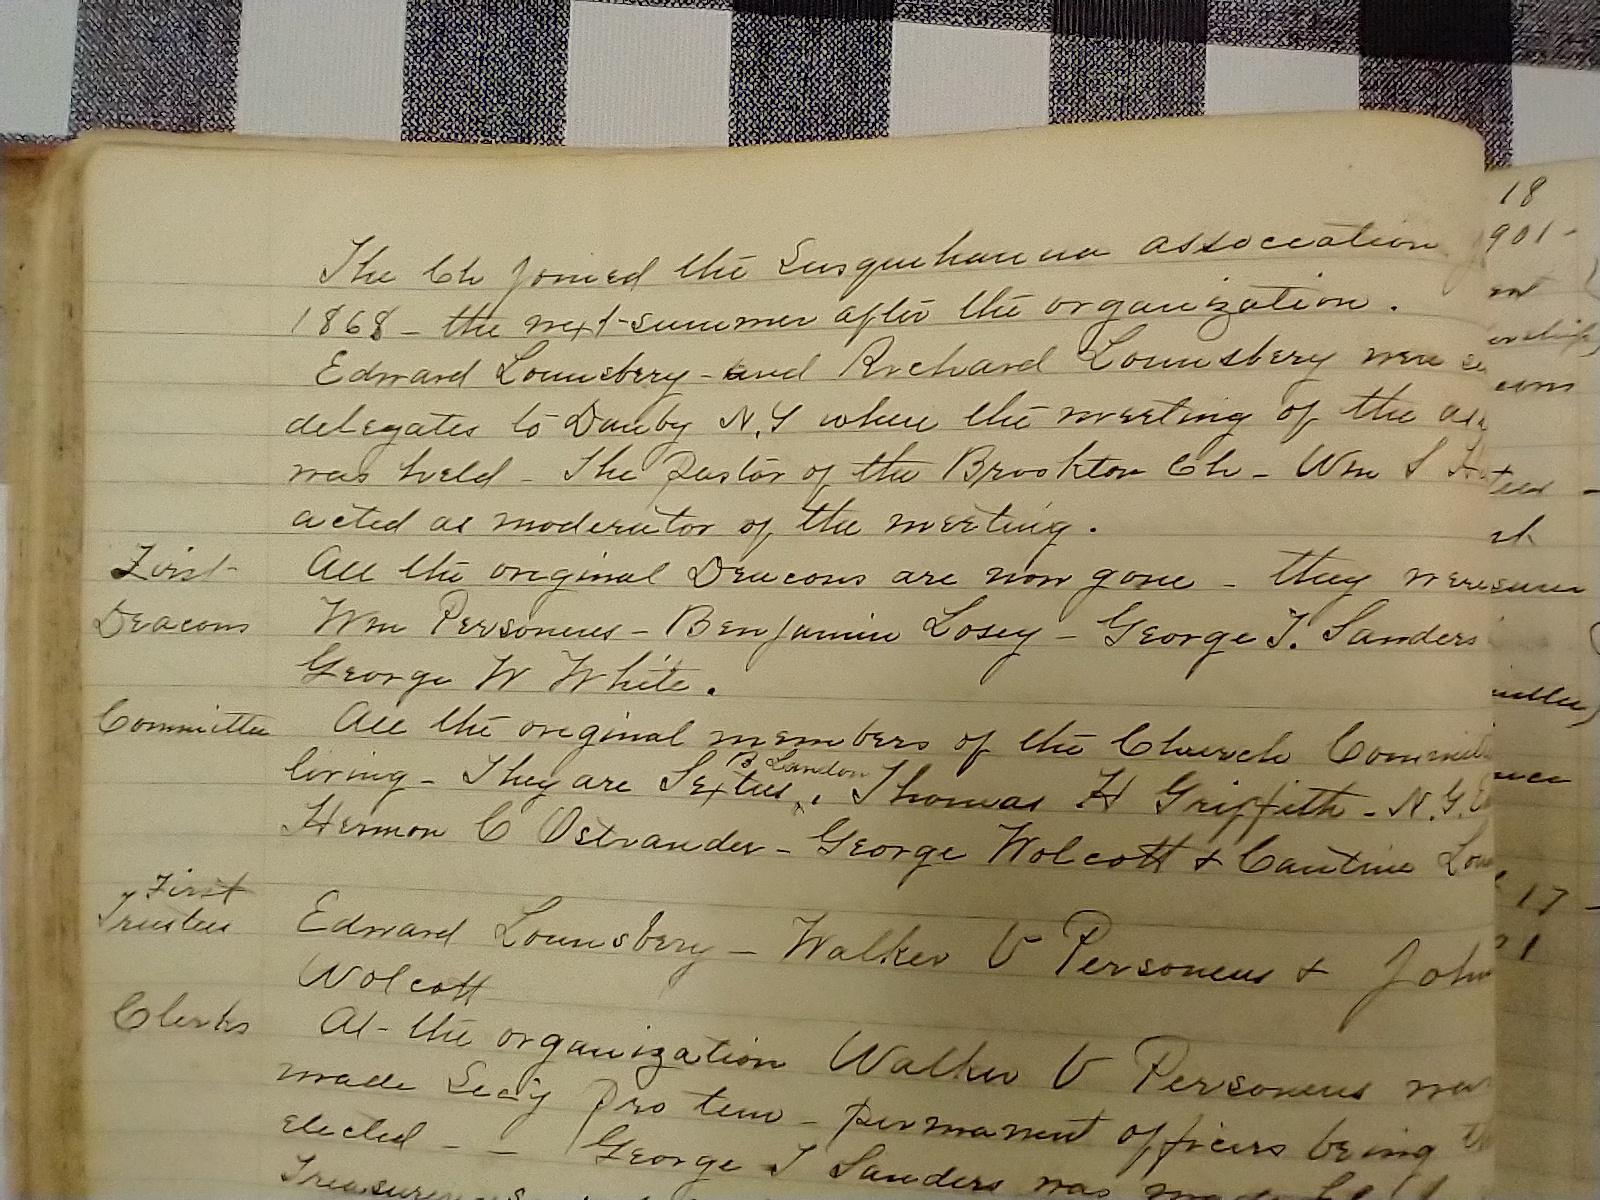 The Ch joined the Susquehanna association
1868 - the next summer after the organization.
Edward Lounsbery - and Richard Lounsbery were
delegates to Danby N.Y where the meeting of the
was held - The pastor of the Brookton Ch - Wm S
acted as moderator of the meeting.
First
Deacons
All the original Deacons are now gone - they were
Wm Personeus - Benjamin Losey - George T. Sanders
George W White.
Committee
All the original members of the Church
B Landon
living - They are Sextus, Thomas H Griffith - N.G.
Hermon C Ostrander - George Wolcott & Cantine
First
Trustees
Edward Lounsbery - Walker V Personeus & John
Wolcott
Clerks
At the organization Walker V Personeus was
made Sec'y pro tem - permanent officers being
elected - - George T Sanders was made
18
901-
17 -